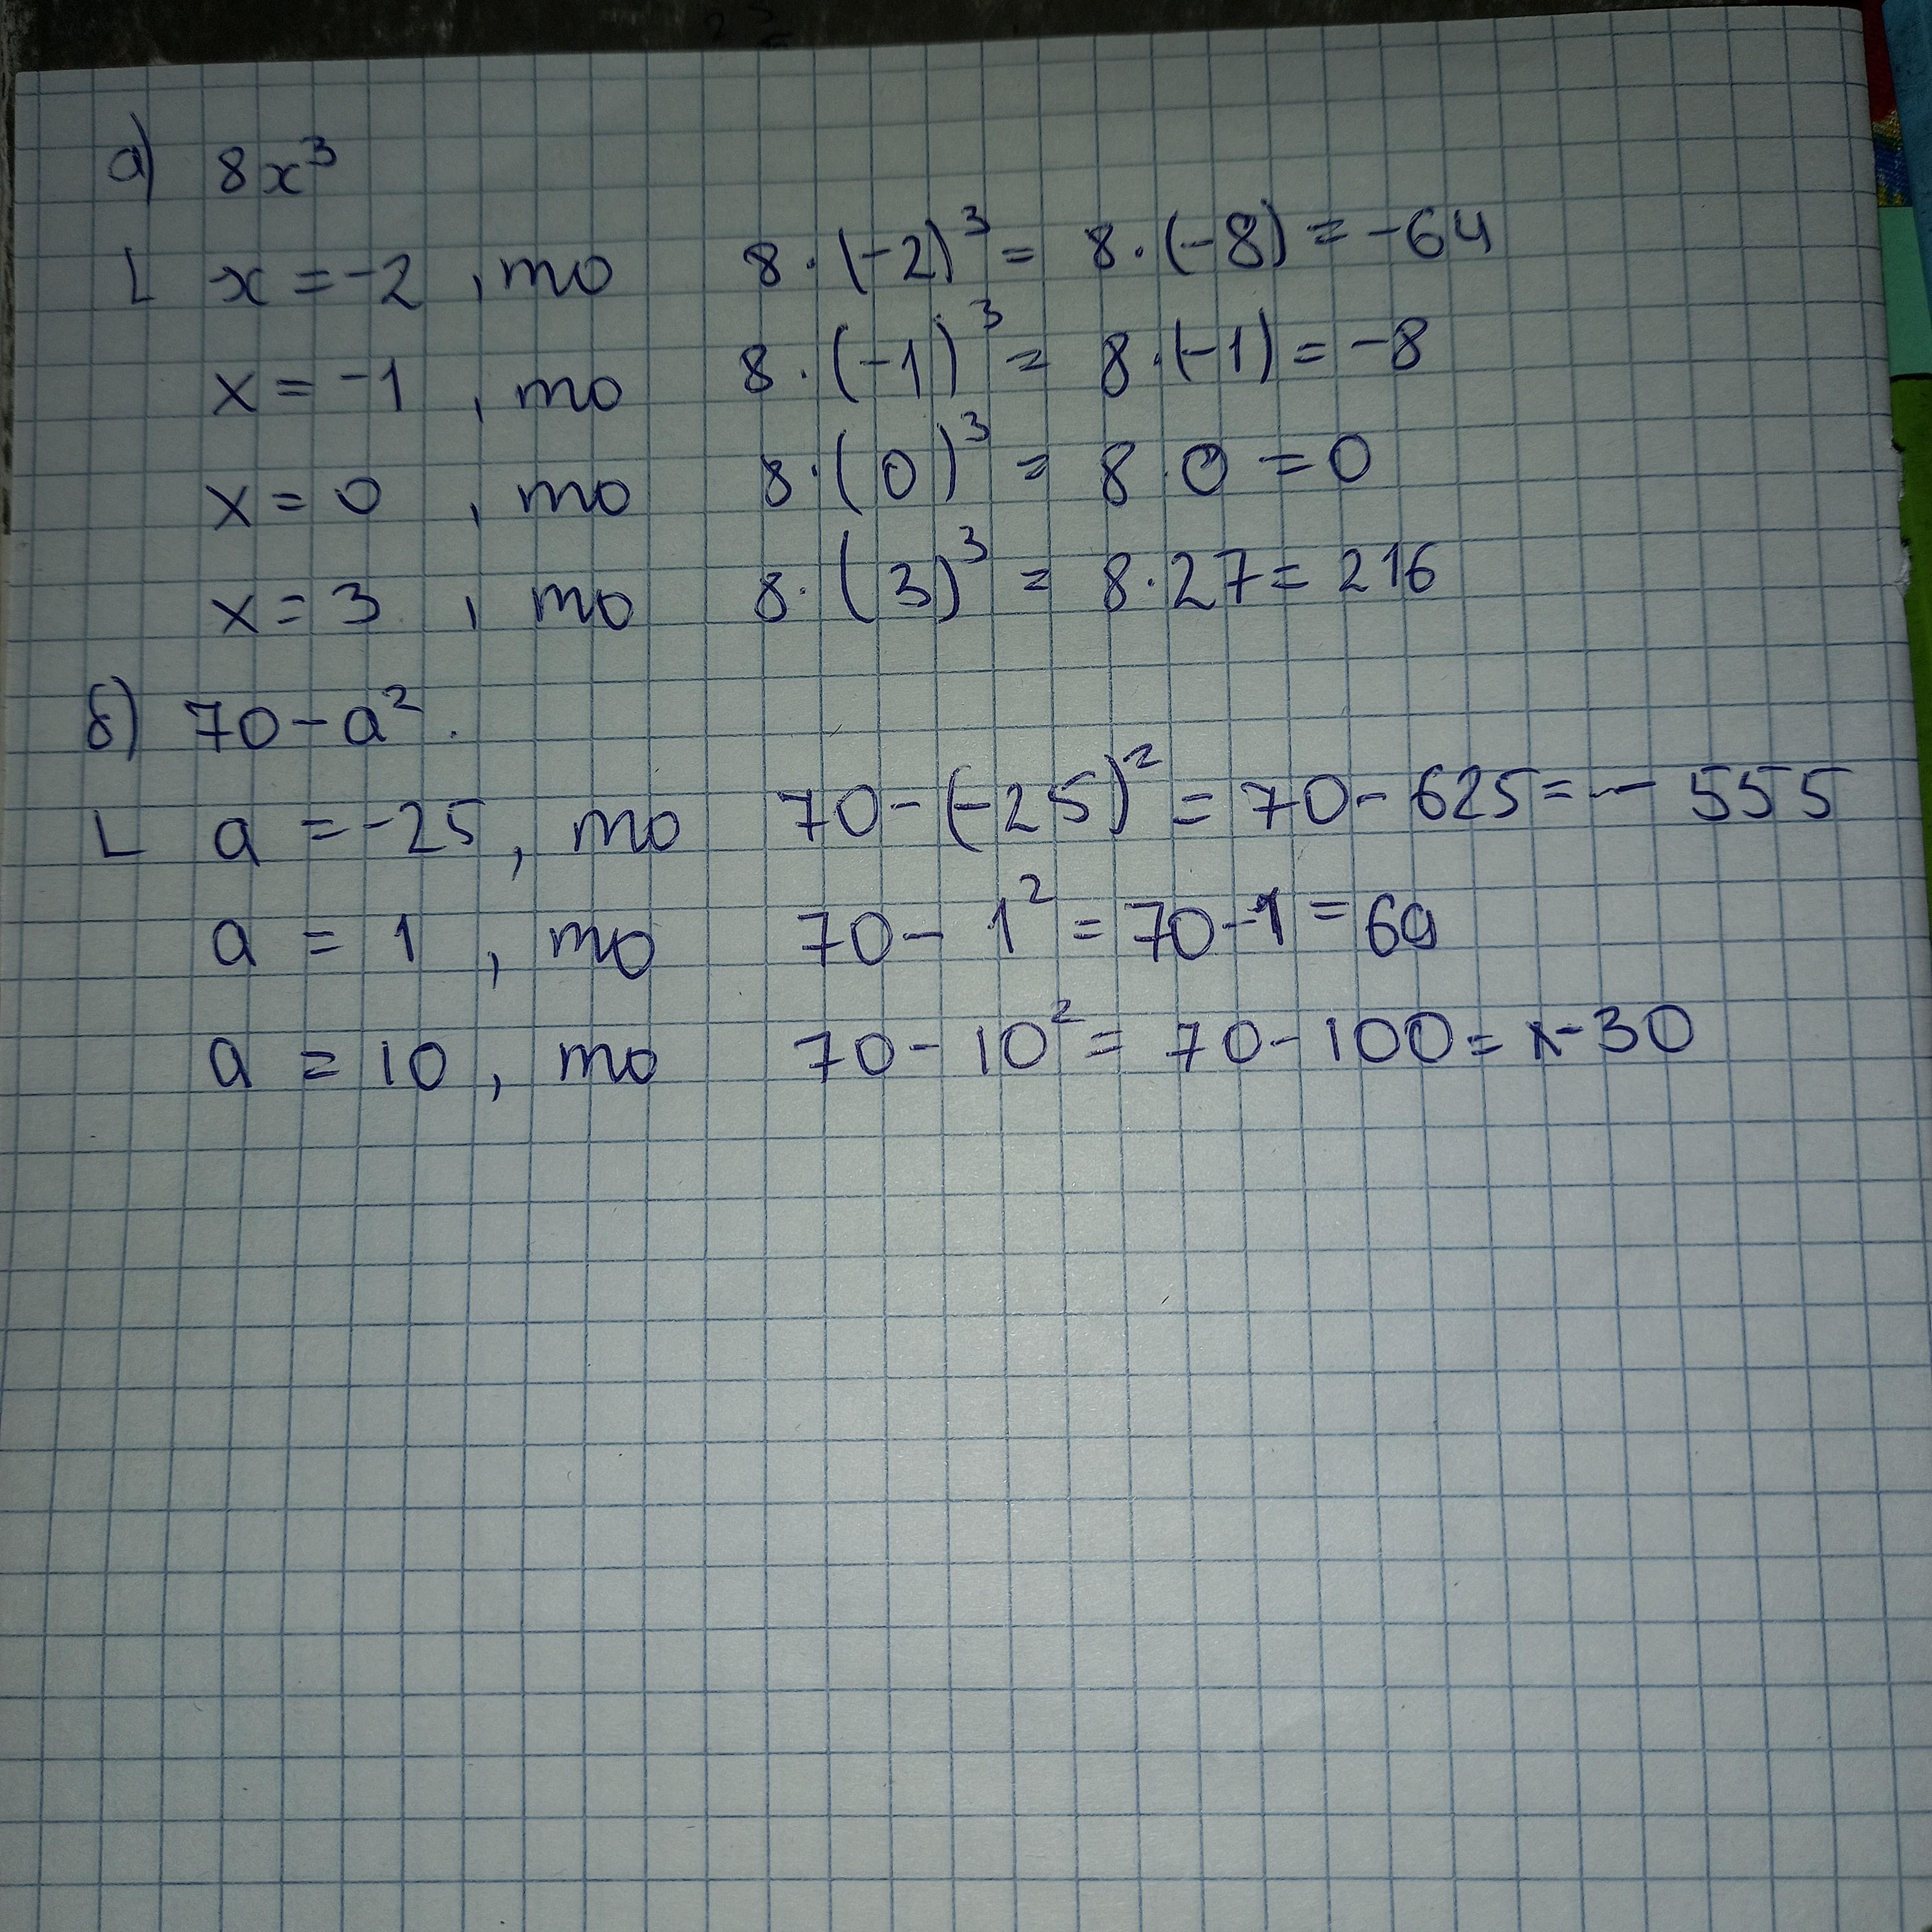 а) 8x³
L x = -2 , то 8·(-2)³ = 8·(-8) = -64
x = -1 , то 8·(-1)³ = 8·(-1) = -8
x = 0 , то 8·(0)³ = 8·0 = 0
x = 3 , то 8·(3)³ = 8·27 = 216
б) 70 - a².
L a = -25, то 70 - (-25)² = 70 - 625 = - 555
a = 1 , то 70 - 1² = 70 - 1 = 69
a = 10 , то 70 - 10² = 70 - 100 = -30